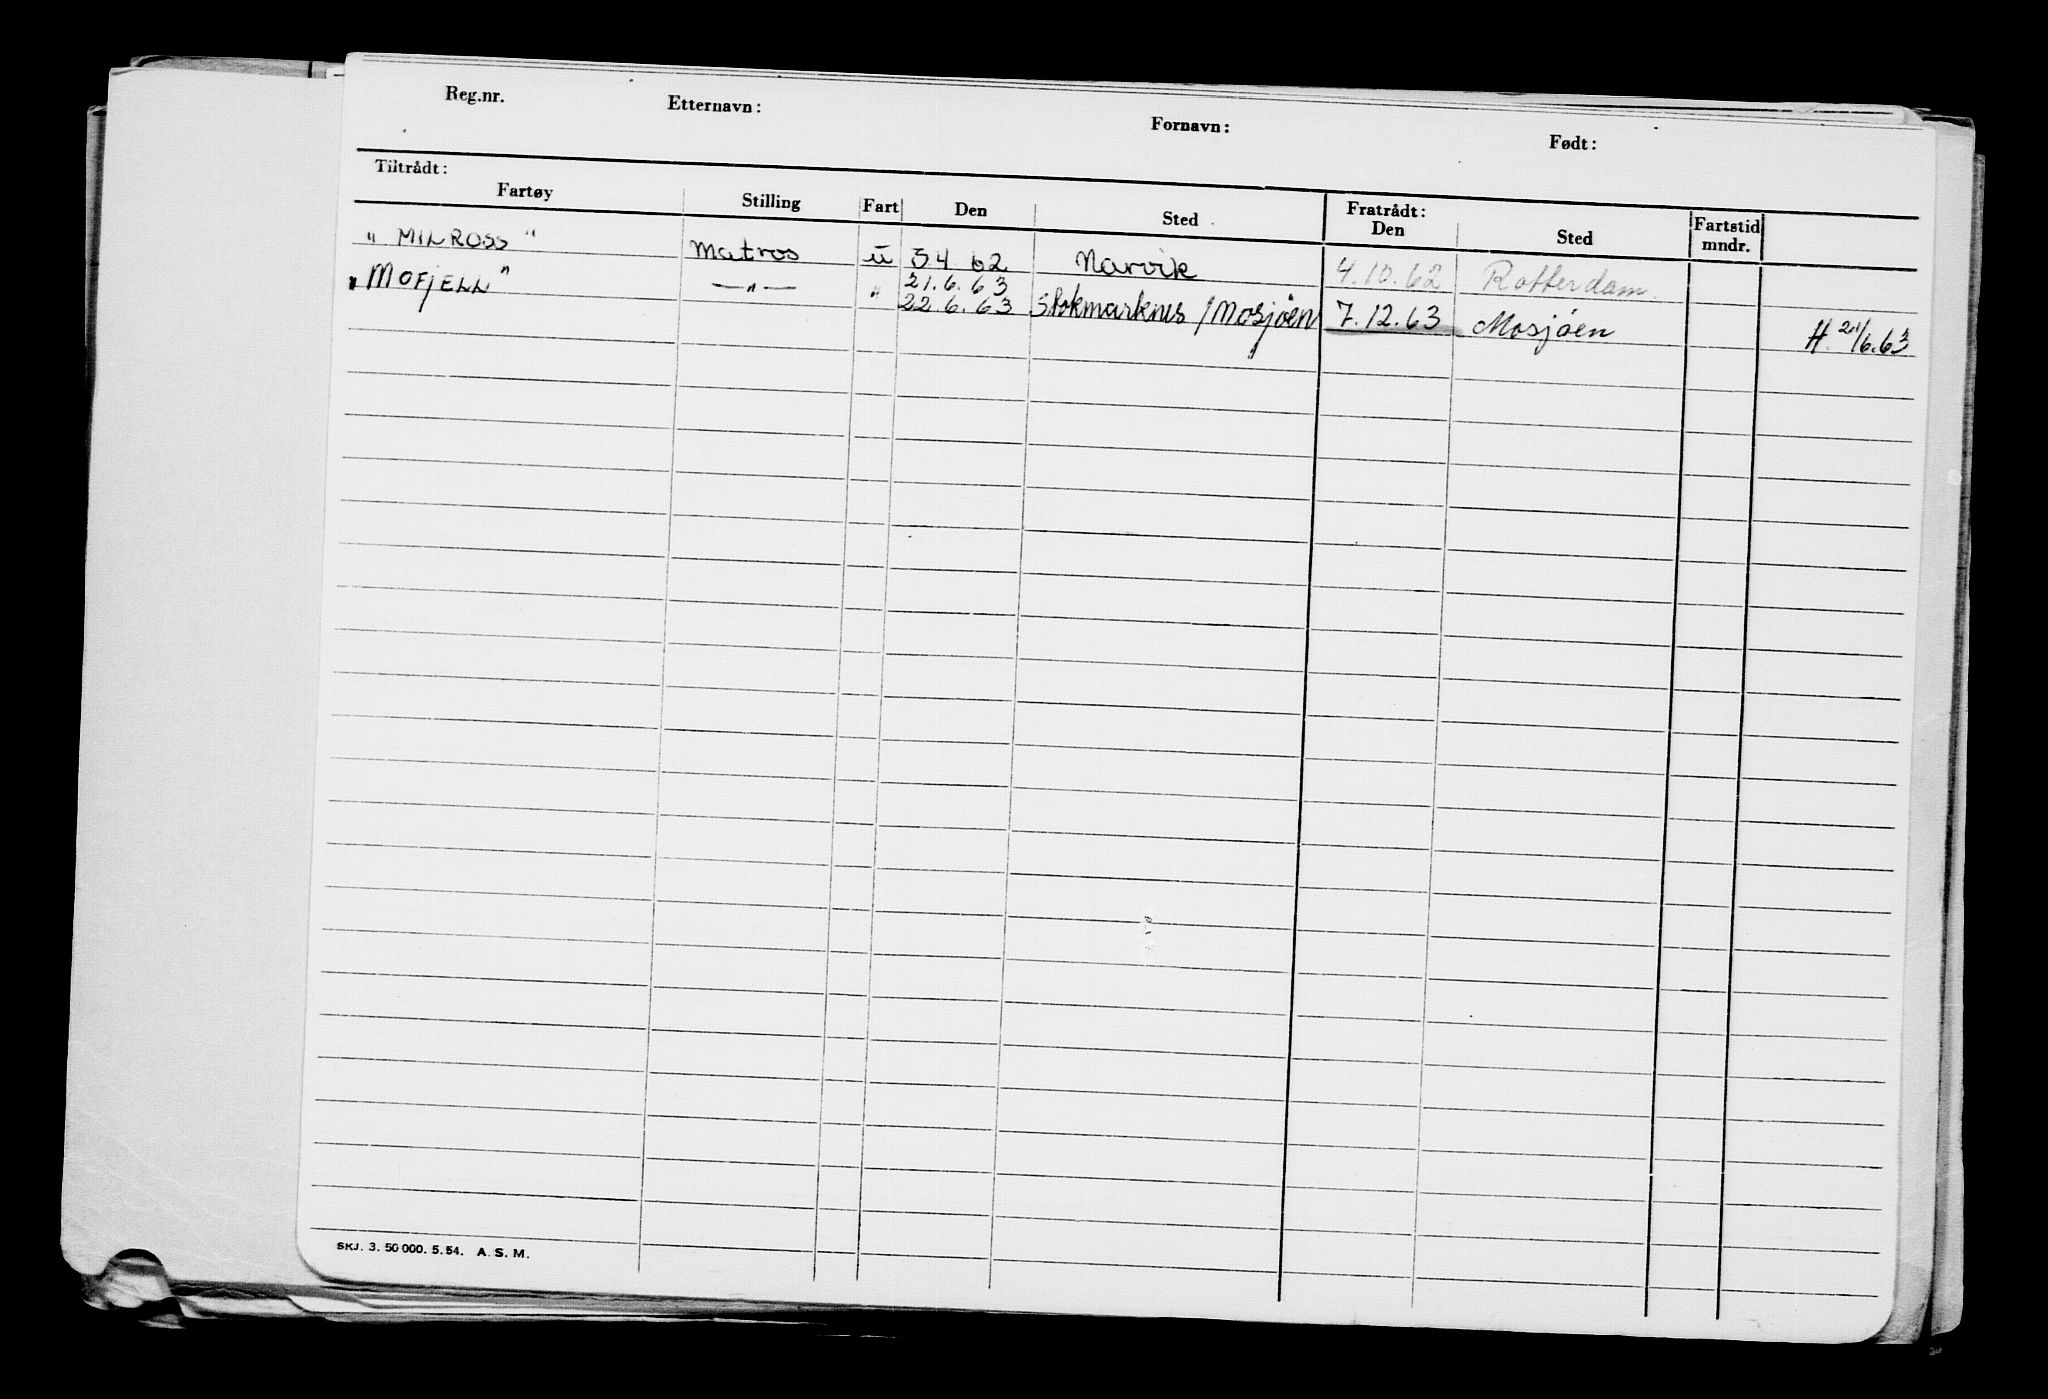 Reg.nr. Etternavn: Fornavn: Født:
Tiltrådt: Fratrådt:
Fartøy Stilling Fart Den Sted Den Sted Fartstid mndr.
"MILROSS" Matros u 5.4.62 Narvik 4.10.62 Rotterdam.
"MOFJELL" —"— " 21.6.63 22.6.63 Stokmarknes / Mosjøen 7.12.63 Mosjøen H. 21/6.63
SKJ. 3. 50 000. 5. 54. A. S. M.